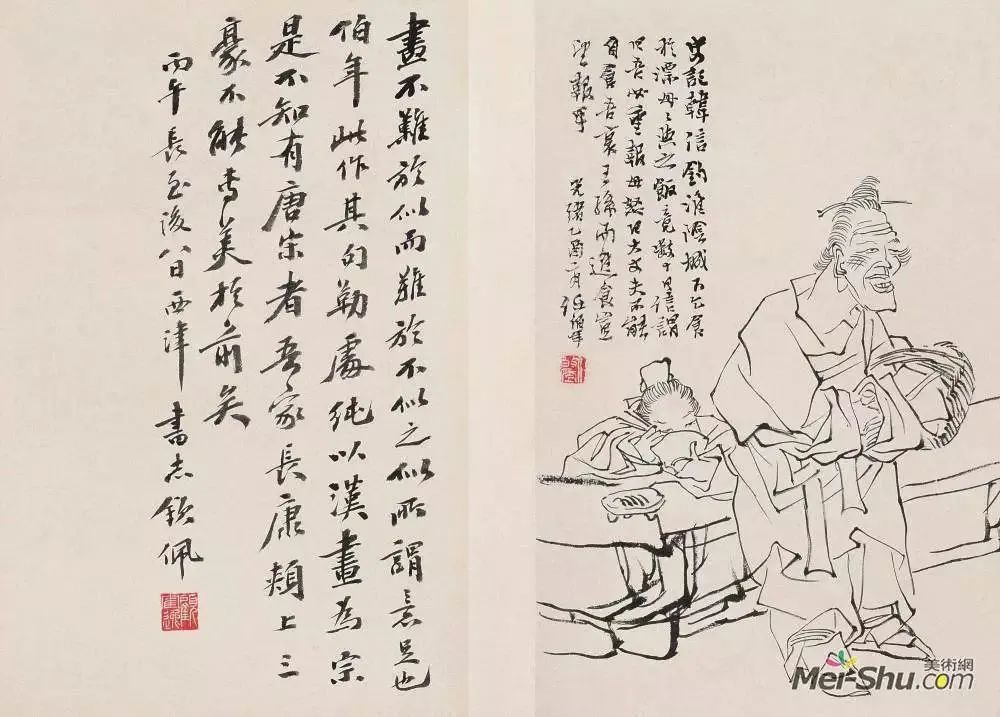 史記韓信釣淮陰城下乞食
於漂母々與之飯竟數十日信謂
曰吾必重報母怒曰大丈夫不能
自食吾哀王孫而進食豈
望報乎 光緒乙酉二月任伯年
畫不難於似而難於不似之似所謂意足也
伯年此作其勾勒處純以漢畫為宗
是不知有唐宋者吾家長康頰上三
豪不能專美於前矣
丙午長至後八日西津書志欽佩
美術網
Mei-Shu.com